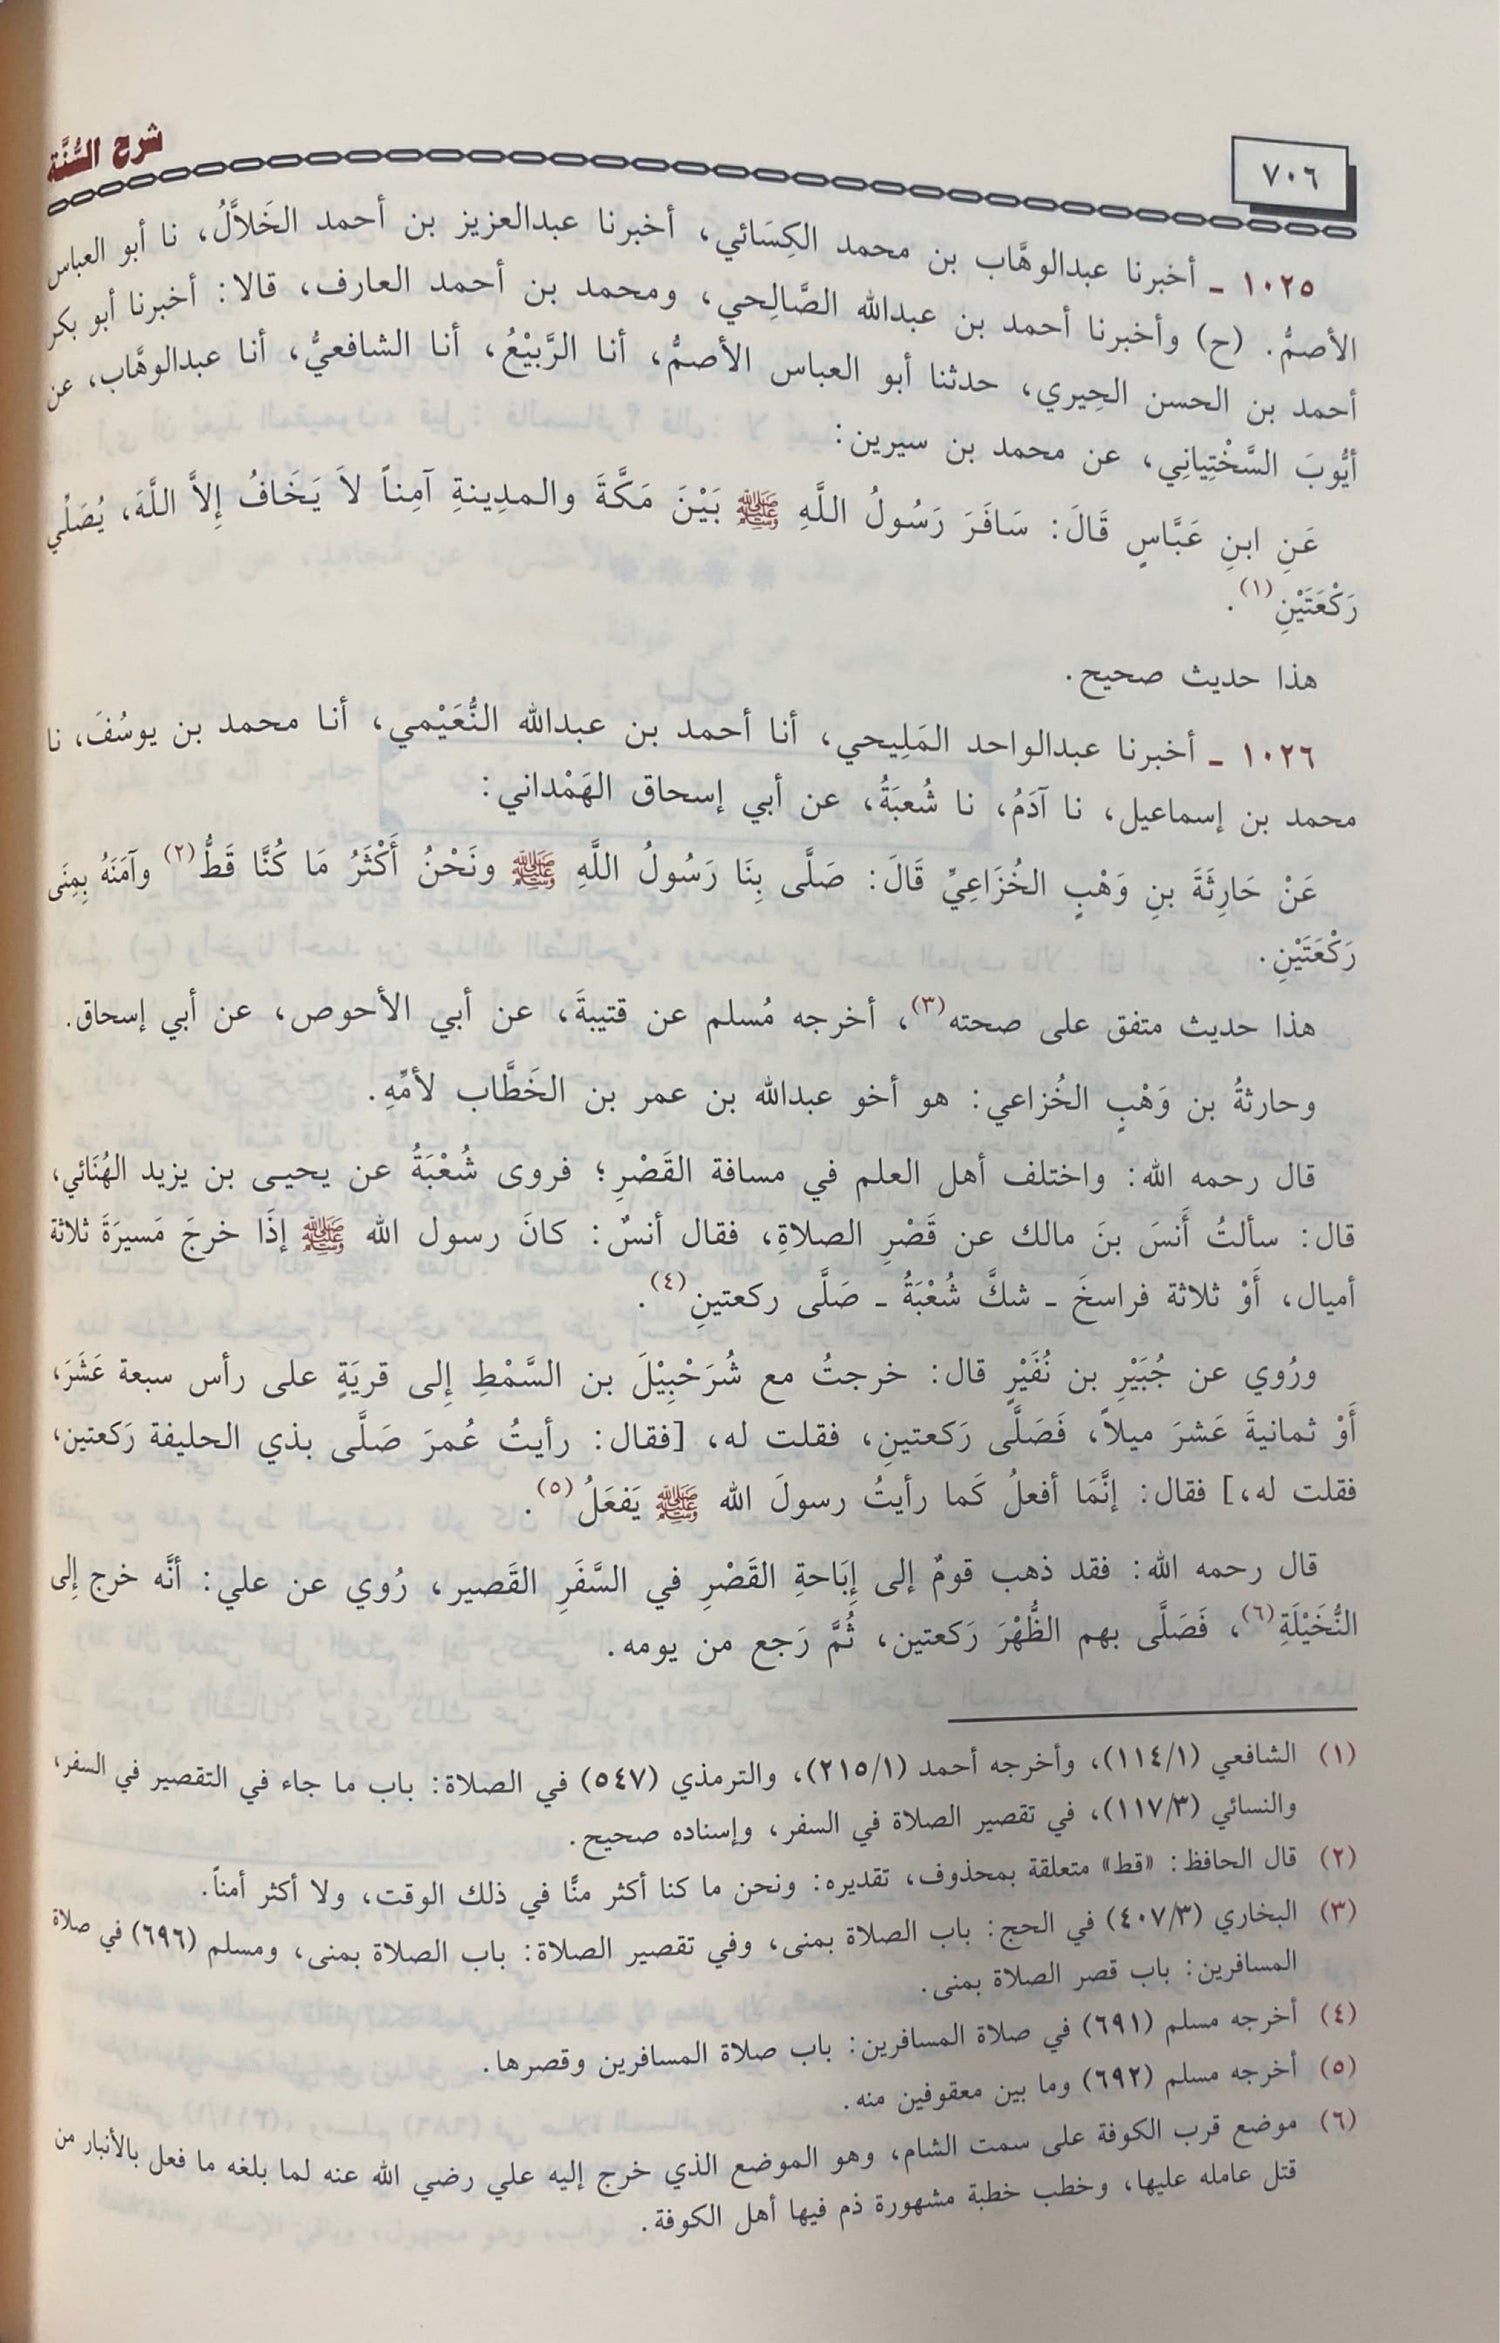 شرح السُّنَّة
٧٠٦
١٠٢٥ ـ أخبرنا عبدالوهَّاب بن محمد الكِسَائي، أخبرنا عبدالعزيز بن أحمد الخَلاَّلُ، نا أبو العباس
الأصمُّ. (ح) وأخبرنا أحمد بن عبدالله الصَّالِحي، ومحمد بن أحمد العارف، قالا: أخبرنا أبو بكر
أحمد بن الحسن الحِيري، حدثنا أبو العباس الأصمُّ، أنا الرَّبِيْعُ، أنا الشافعيُّ، أنا عبدالوهَّاب، عن
أيُّوبَ السَّخْتِيانِي، عن محمد بن سيرين:
عَنِ ابنِ عَبَّاسٍ قَالَ: سَافَرَ رَسُولُ اللَّهِ ﷺ بَيْنَ مَكَّةَ والمدِينةِ آمِناً لاَ يَخَافُ إِلاَّ اللَّهَ، يُصَلِّي
رَكْعَتَيْنِ(١).
هذا حديث صحيح.
١٠٢٦ ـ أخبرنا عبدالواحد المَلِيحي، أنا أحمد بن عبدالله النُّعَيْمي، أنا محمد بن يوسُفَ، نا
محمد بن إسماعيل، نا آدَمُ، نا شُعبَةُ، عن أبي إسحاق الهَمْداني:
عَنْ حَارِثَةَ بنِ وَهْبٍ الخُزَاعِيِّ قَالَ: صَلَّى بِنَا رَسُولُ اللَّهِ ﷺ ونَحْنُ أَكْثَرُ مَا كُنَّا قَطُّ(٢) وآمَنَهُ بِمِنَى
رَكْعَتَيْنِ.
هذا حديث متفق على صحته(٣)، أخرجه مُسلم عن قتيبةَ، عن أبي الأحوص، عن أبي إسحاق.
وحارثةُ بن وَهْبٍ الخُزاعي: هو أخو عبدالله بن عمر بن الخَطَّاب لأمِّهِ.
قال رحمه الله: واختلف أهل العلم في مسافة القَصْرِ؛ فروى شُعْبَةُ عن يحيى بن يزيد الهُنَائي،
قال: سألتُ أَنسَ بنَ مالك عن قَصْرِ الصلاةِ، فقال أنسٌ: كانَ رسول الله ﷺ إذَا خرجَ مَسيرَةَ ثلاثة
أميال، أَوْ ثلاثة فراسخَ ـ شكَّ شُعْبَةُ ـ صَلَّى ركعتينِ(٤).
ورُوي عن جُبَيْرِ بن نُفَيْرٍ قال: خرجتُ مع شُرَحْبِيْلَ بن السَّمْطِ إِلى قريَةٍ على رأس سبعة عَشَرَ،
أَوْ ثمانيةَ عَشرَ ميلاً، فَصَلَّى رَكعتينِ، فقلت له، [فقال: رأيتُ عُمرَ صَلَّى بذي الحليفة رَكعتين،
فقلت له،] فقال: إنَّمَا أفعلُ كَما رأيتُ رسولَ الله ﷺ يَفعَلُ(٥).
قال رحمه الله: فقد ذهب قومٌ إلى إِبَاحةِ القَصْرِ في السَّفَرِ القَصير، رُوي عن علي: أنَّه خرج إلى
النُّخَيْلَةِ(٦)، فَصَلَّى بهم الظُّهْرَ رَكعتين، ثُمَّ رَجع من يومه.
(١) الشافعي (١١٤/١)، وأخرجه أحمد (٢١٥/١)، والترمذي (٥٤٧) في الصلاة: باب ما جاء في التقصير في السفر،
والنسائي (١١٧/٣)، في تقصير الصلاة في السفر، وإسناده صحيح.
(٢) قال الحافظ: «قط» متعلقة بمحذوف، تقديره: ونحن ما كنا أكثر منَّا في ذلك الوقت، ولا أكثر أمناً.
(٣) البخاري (٤٠٧/٣) في الحج: باب الصلاة بمنى، وفي تقصير الصلاة: باب الصلاة بمنى، ومسلم (٦٩٦) في صلاة
المسافرين: باب قصر الصلاة بمنى.
(٤) أخرجه مسلم (٦٩١) في صلاة المسافرين: باب صلاة المسافرين وقصرها.
(٥) أخرجه مسلم (٦٩٢) وما بين معقوفين منه.
(٦) موضع قرب الكوفة على سمت الشام، وهو الموضع الذي خرج إليه علي رضي الله عنه لما بلغه ما فعل بالأنبار من
قتل عامله عليها، وخطب خطبة مشهورة ذم فيها أهل الكوفة.